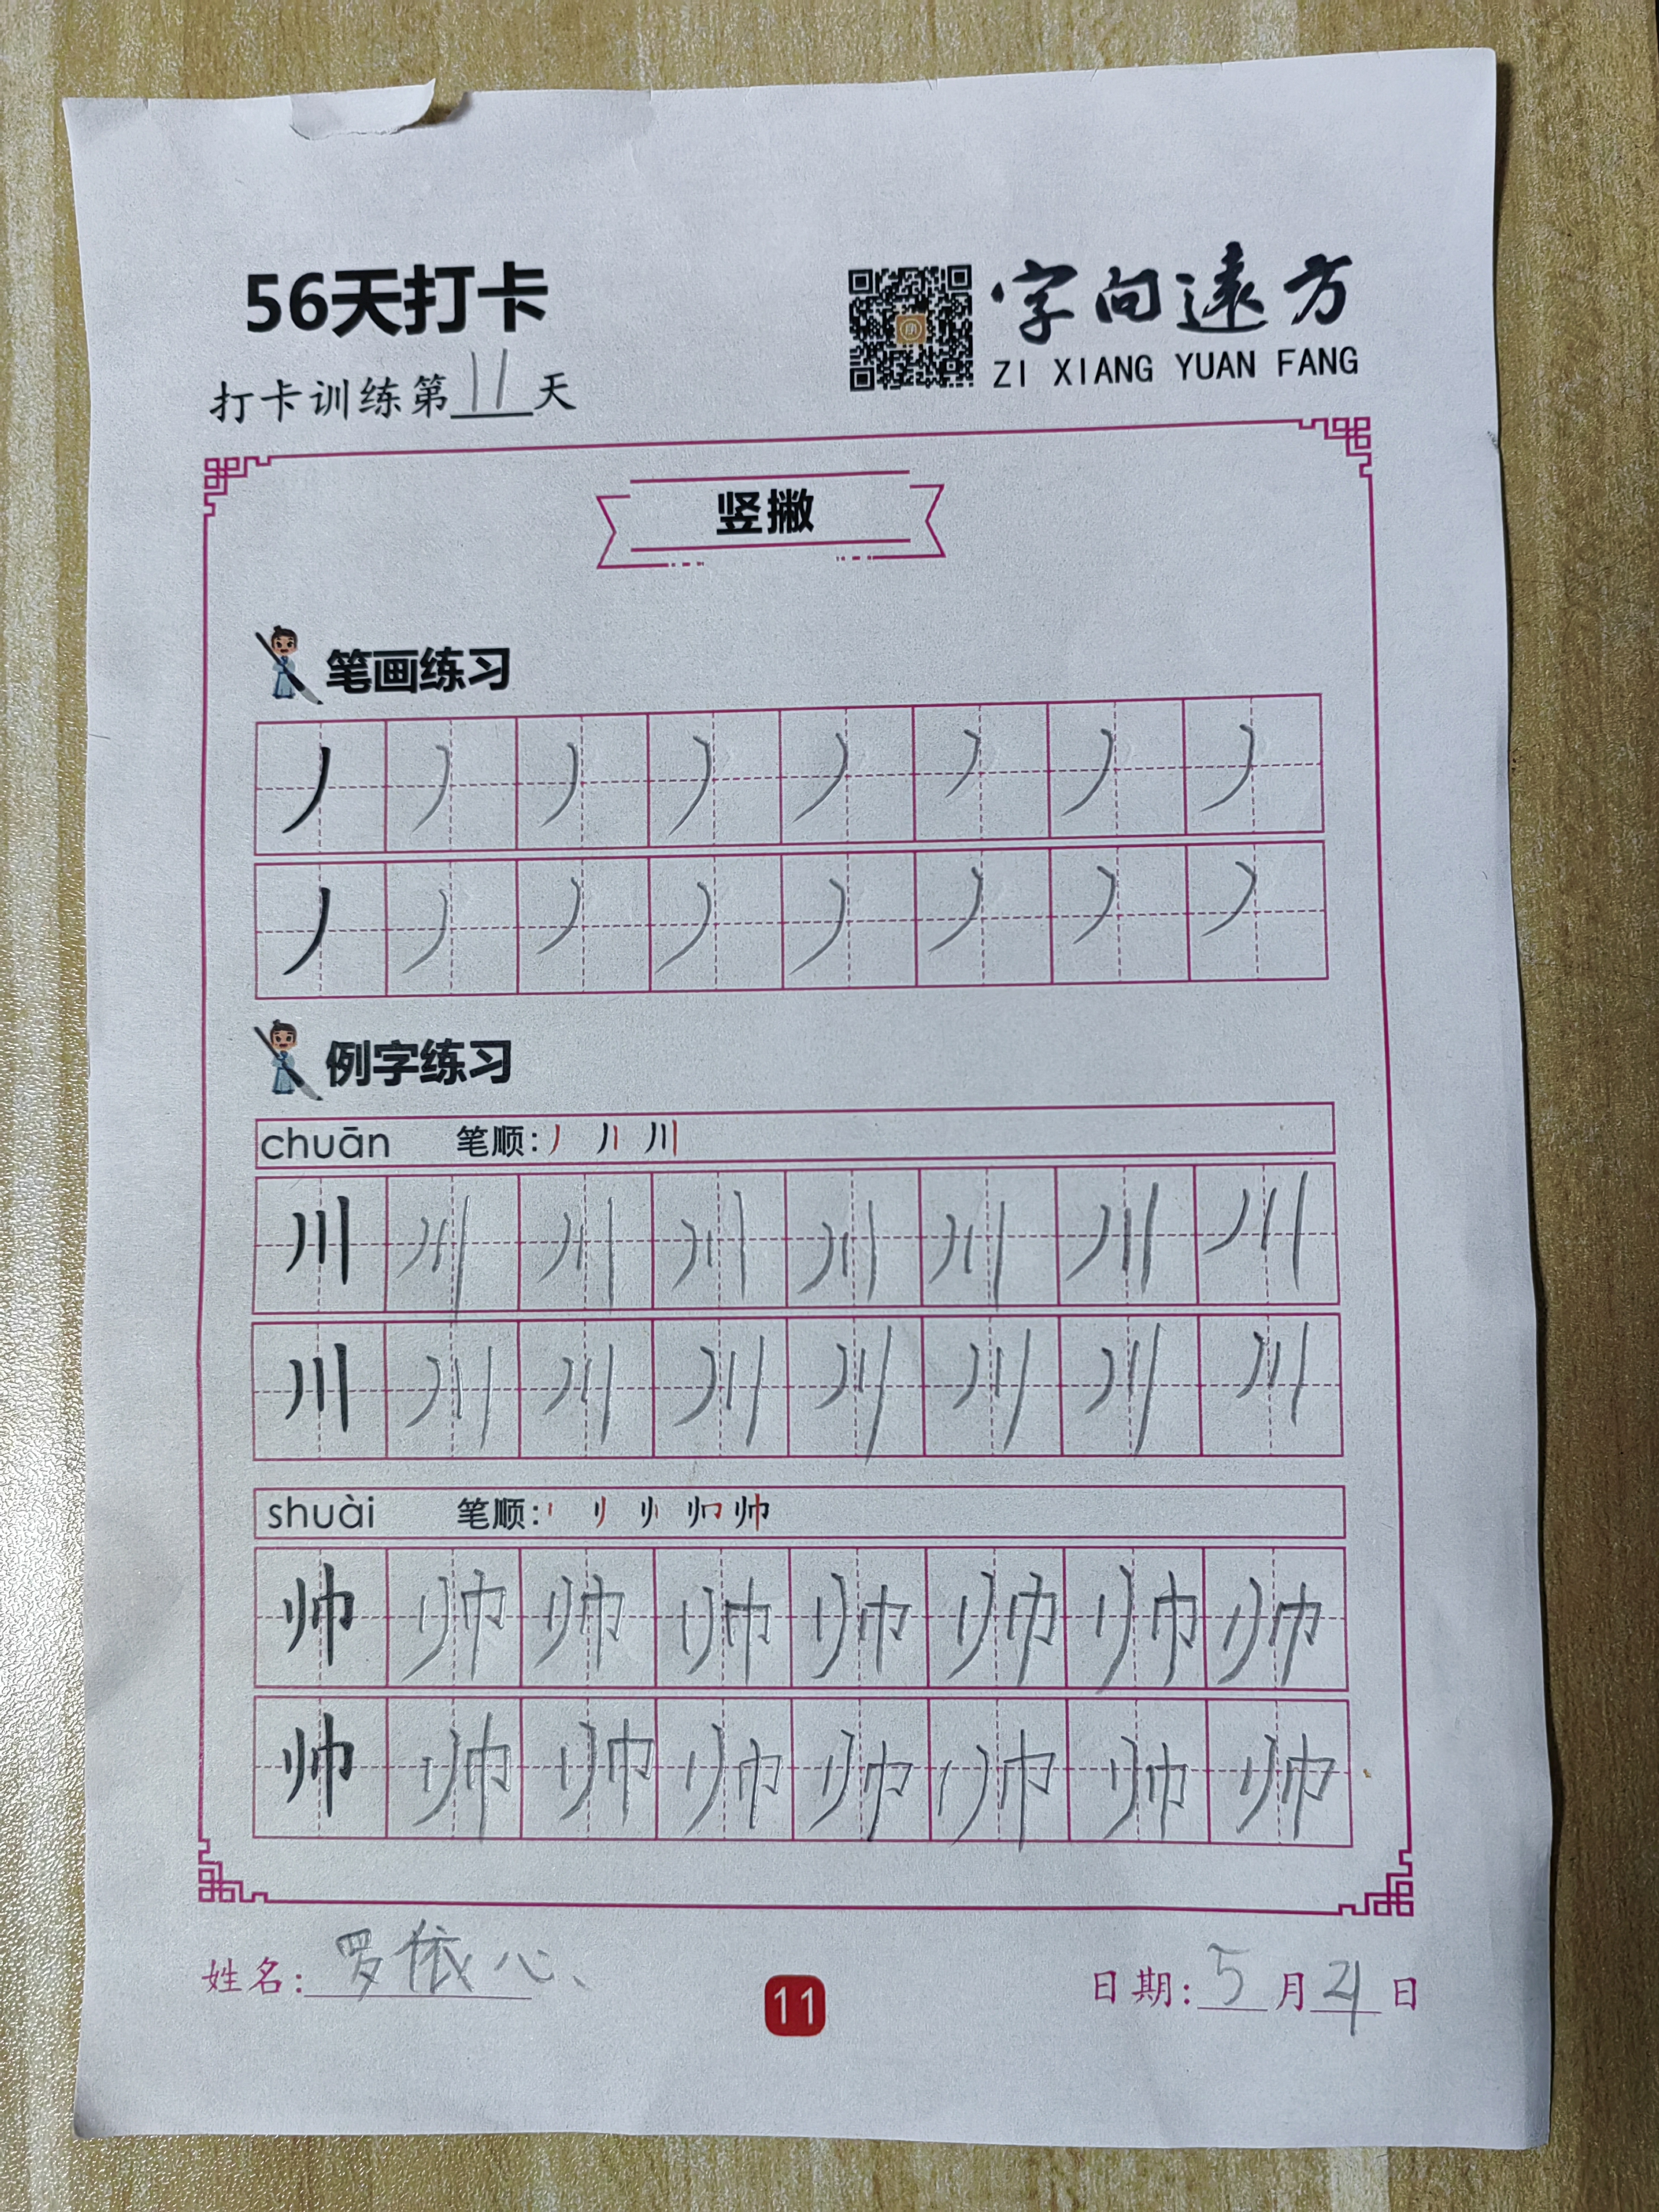 56天打卡
字向遠方
ZI XIANG YUAN FANG
打卡训练第11天
竖撇
笔画练习
丿 丿 丿 丿 丿 丿 丿 丿
丿 丿 丿 丿 丿 丿 丿 丿
例字练习
chuān 笔顺: 丿 丿丨 川
川 川 川 川 川 川 川 川
川 川 川 川 川 川 川 川
shuài 笔顺: 帅
帅 帅 帅 帅 帅 帅 帅 帅
帅 帅 帅 帅 帅 帅 帅 帅
姓名: 罗依心
11
日期: 5月21日